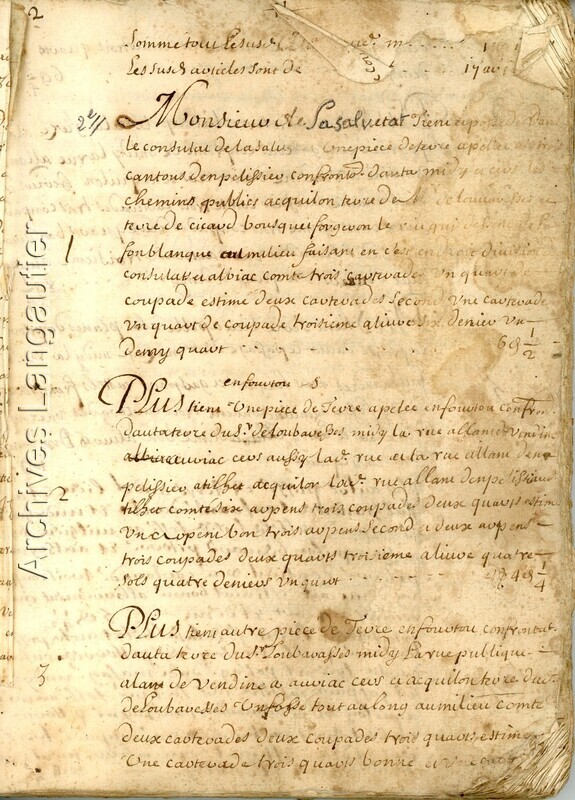 2
somme tout Les susd
Les susd articles sont de
2e //
Monsieur de Lasalvetat Tient et possede dans
le consulat de la salv Une piece de terre apelee
cantons d'en pelissier confronte d'auta midy a cers
chemins publics acquilon terre de
terre de cicard bousquet forgeron le
1
fonblanque au milieu faisant en c'est endroit division
consulat et albiac comte trois carterades Un quart
coupade estime deux carterades second Une carterade
Un quart de coupade troisieme alivre six denier un
demy quart 6 d 1/2
enfourtou
Plus tient Une piece de Terre apelee enfourtou confron
d'auta terre du Sr. de Loubavesses midy la rue allant de Vendine
auriac cers aussy lad. rue et la rue allant d'en
pelissier a tilhet acquilon lad. rue allant d'en pelissier
2
tilhet comte six arpens trois coupades deux quarts estime
Un arpent bon trois arpens second et deux arpens
trois coupades deux quarts troisieme alivre quatre
sols quatre deniers Un quart 4 s 4 d 1/4
Plus tient autre piece de Terre enfourtou confrontat.
d'auta terre du Sr. Loubavasses midy La rue publique
3
alant de Vendine a auriac cers et acquilon terre du Sr.
de Loubavesses Un fosse tout au long au milieu comte
deux carterades deux coupades trois quarts estime
Une carterade trois quarts bonne et
Archives Langautier